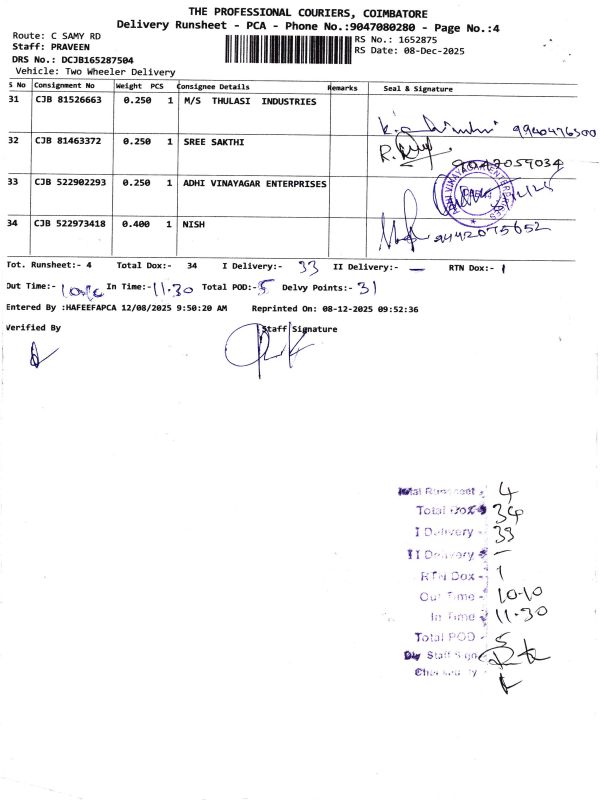 THE PROFESSIONAL COURIERS, COIMBATORE
Delivery Runsheet - PCA - Phone No.:9047080280 - Page No.:4
Route: C SAMY RD
RS No.: 1652875
Staff: PRAVEEN
RS Date: 08-Dec-2025
DRS No.: DCJB165287504
Vehicle: Two Wheeler Delivery
S No Consignment No Weight PCS Consignee Details Remarks Seal & Signature
31 CJB 81526663 0.250 1 M/S THULASI INDUSTRIES
9940476500
32 CJB 81463372 0.250 1 SREE SAKTHI
R.
9042059034
33 CJB 522902293 0.250 1 ADHI VINAYAGAR ENTERPRISES
ADHI VINAYAGAR ENTERPRISES
34 CJB 522973418 0.400 1 NISH
9442075652
Tot. Runsheet:- 4 Total Dox:- 34 I Delivery:- 33 II Delivery:- — RTN Dox:- 1
Out Time:- In Time:- 11.30 Total POD:- 5 Delvy Points:- 31
Entered By :HAFEEFAPCA 12/08/2025 9:50:20 AM Reprinted On: 08-12-2025 09:52:36
Verified By Staff Signature
Total Runsheet - 4
Total Dox - 34
I Delivery - 33
II Delivery - —
RTN Dox - 1
Out Time - 10.10
In Time - 11.30
Total POD - 5
Dly Staff Sign